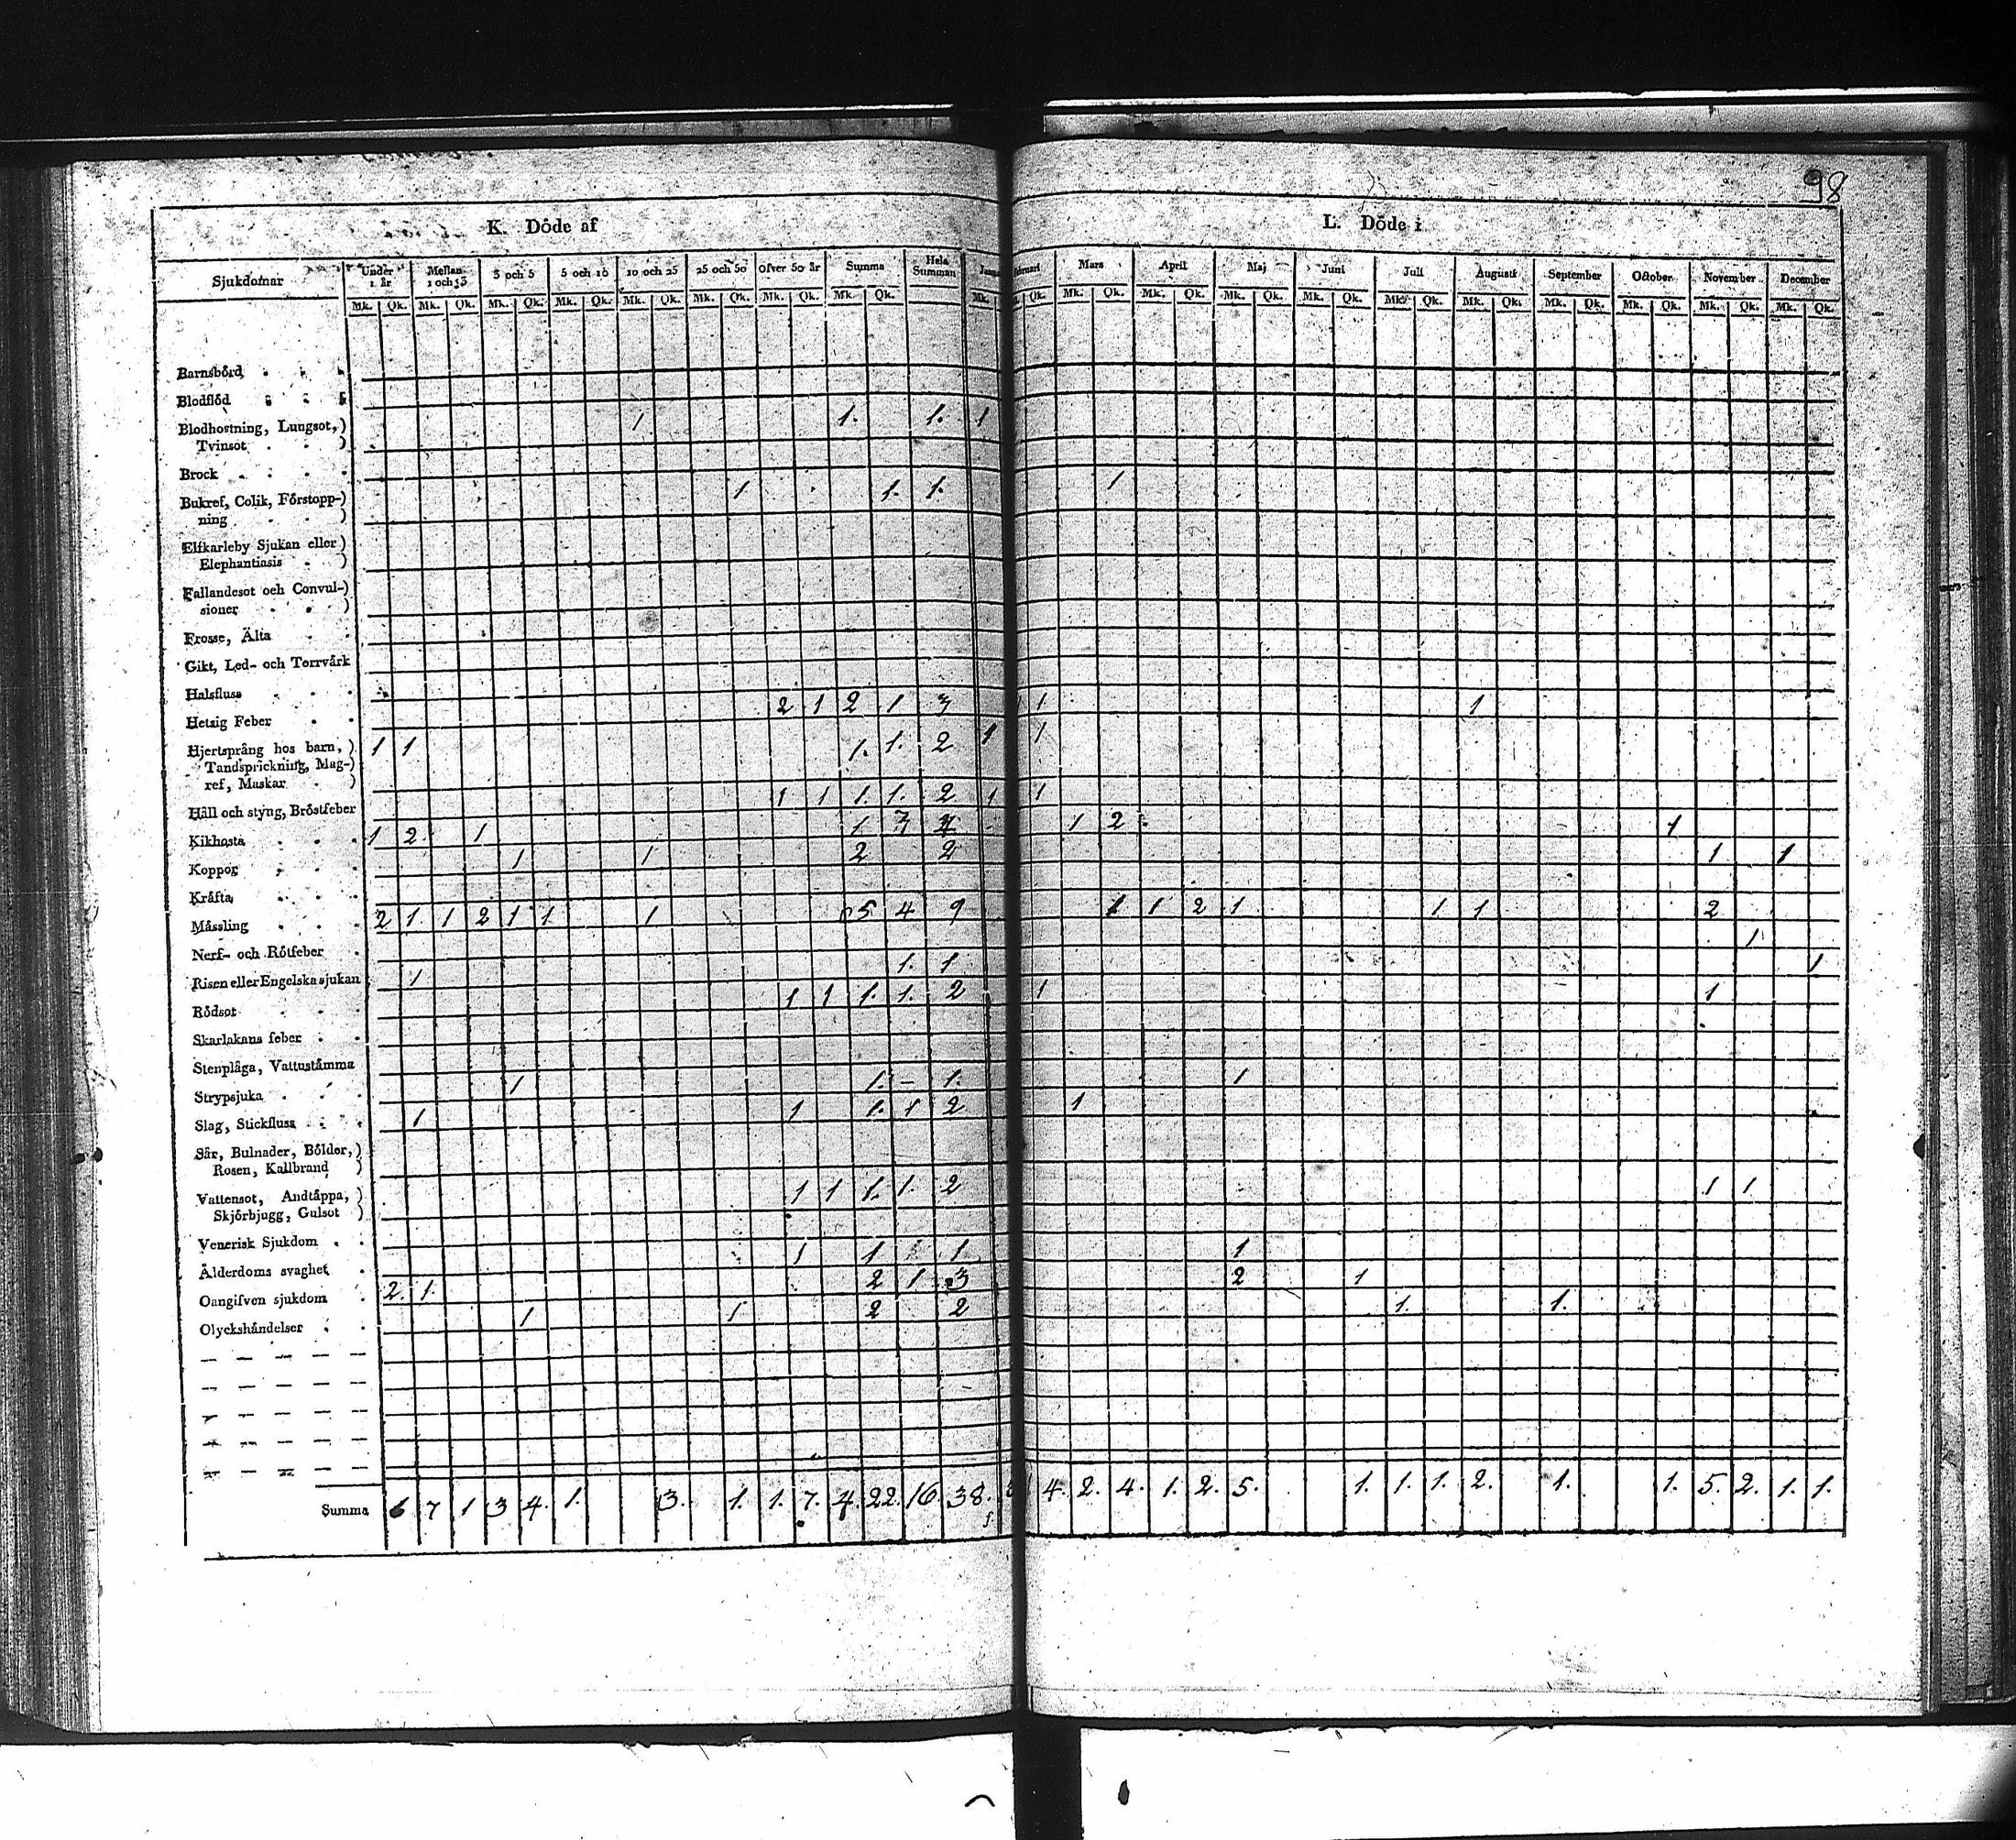 98
K. Döde af
L. Döde i
Sjukdomar Under 1 år Mellan 1 och 3 3 och 5 5 och 10 10 och 25 25 och 50 Ofver 50 år Summa Hela Summan Mars April Maj Juni Juli Augusti September October November December
Mk. Qk. Mk. Qk. Mk. Qk. Mk. Qk. Mk. Qk. Mk. Qk. Mk. Qk. Mk. Qk. Mk. Qk. Mk. Qk. Mk. Qk. Mk. Qk. Mk. Qk. Mk. Qk. Mk. Qk. Mk. Qk. Mk. Qk. Mk. Qk. Mk. Qk. Mk. Qk.
Barnsbörd
Blodflöd
Blodhostning, Lungsot,) 1 1. 1. 1
Tvinsot )
Brock
Bukref, Colik, Förstopp-) 1 1. 1. 1
ning )
Elfkarleby Sjukan eller)
Elephantiasis )
Fallandesot och Convul-)
sioner )
Frosse, Älta
Gikt, Led- och Torrvärk
Halsfluss
Hetsig Feber 2 1 2 1 3 1 1 1
Hjertsprång hos barn, ) 1 1 1. 1. 2 1 1
Tandsprickning, Mag-)
ref, Maskar )
Håll och styng, Bröstfeber 1 1 1. 1. 2 1 1
Kikhosta 1 2 1 1 3 4 1 2 1
Koppor 1 1 2 2 1 1
Kräfta
Mässling 2 1. 1 2 1 1 1 5 4 9 1 1 2 1 1 1 2
Nerf- och Rötfeber 1
Risen eller Engelska sjukan 1 1. 1 1
Rödsot 1 1 1. 1. 2 1 1
Skarlakans feber
Stenplåga, Vattustämma
Strypsjuka 1 1. – 1. 1
Slag, Stickfluss 1 1 1. 1 2 1
Sår, Bulnader, Bölder,)
Rosen, Kallbrand )
Vattensot, Andtäppa, ) 1 1 1. 1. 2 1 1.
Skjörbjugg, Gulsot )
Venerisk Sjukdom
Ålderdoms svaghet 1 1 1 1
Oangifven sjukdom 2. 1. 2 1 3 2 1
Olyckshändelser 1 1 2 2 1. 1.
Summa 6 7 1 3 4. 1. 3. 1. 1. 7. 4. 22. 16. 38. 4. 2. 4. 1. 2. 5. 1. 1. 1. 2. 1. 1. 5. 2. 1. 1.